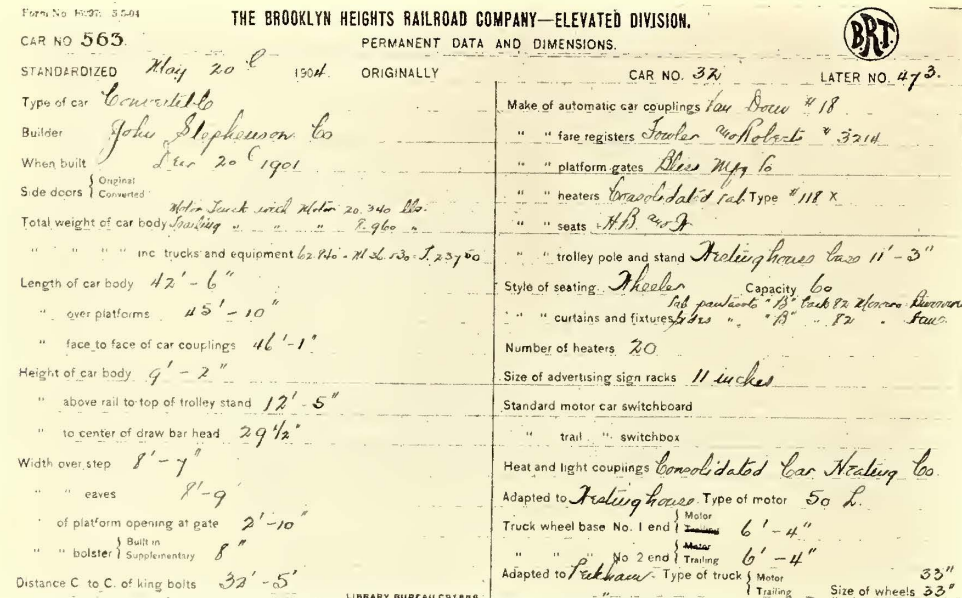 Form No 5-5-04
THE BROOKLYN HEIGHTS RAILROAD COMPANY—ELEVATED DIVISION.
CAR NO 563.
PERMANENT DATA AND DIMENSIONS.
B.R.T.
STANDARDIZED May 20 1904. ORIGINALLY CAR NO. 32 LATER NO. 473.
Type of car Convertible
Builder John Stephenson Co
When built 20 1901
Side doors { Original
Converted
Motor Truck with Motor 20.340 lbs.
Total weight of car body Trailing " " " 8.960 "
" " " " inc trucks and equipment
Length of car body 42' - 6"
" over platforms 45' - 10"
" face to face of car couplings 46' - 1"
Height of car body 9' - 2"
" above rail to top of trolley stand 12' - 5"
" to center of draw bar head 29 1/2"
Width over step 8' - 7"
" " eaves 8' - 9
" of platform opening at gate 2' - 10"
" " bolster { Built in
Supplementary 8"
Distance C to C. of king bolts 32' - 5'
LIBRARY BUREAU
Make of automatic car couplings Van Dorn # 18
" " fare registers # 3214
" " platform gates Bliss Mfg Co
" " heaters Consolidated Type # 118 X
" " seats H.B.
" " trolley pole and stand Westinghouse Base 11' - 3"
Style of seating Wheeler Capacity 60
" " curtains and fixtures
Number of heaters 20
Size of advertising sign racks 11 inches
Standard motor car switchboard
" trail " switchbox
Heat and light couplings Consolidated Car Heating Co.
Adapted to Westinghouse Type of motor 50 L.
Truck wheel base No. 1 end { Motor
Trailing 6' - 4"
" " " No 2 end { Motor
Trailing 6' - 4"
Adapted to Peckham Type of truck { Motor 33"
Trailing Size of wheels 33"